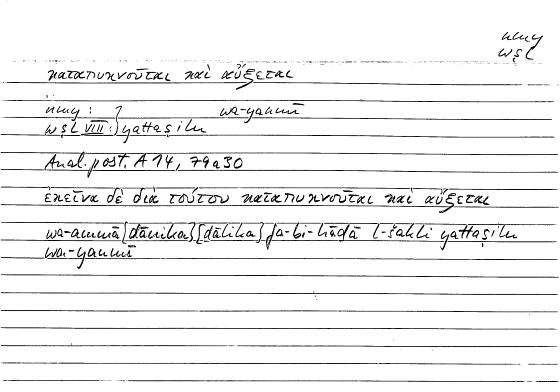 nmy
wṣl
καταπυκνοῦται καὶ αὔξεται
nmy : wa-yanmī
wṣl VIII : } yattaṣilu
Anal. post. A 14, 79a30
ἐκεῖνα δὲ διὰ τούτου καταπυκνοῦται καὶ αὔξεται
wa-ammā [ḏānika] [ḏālika] fa-bi-hāḏā l-šakli yattaṣilu
wa-yanmī